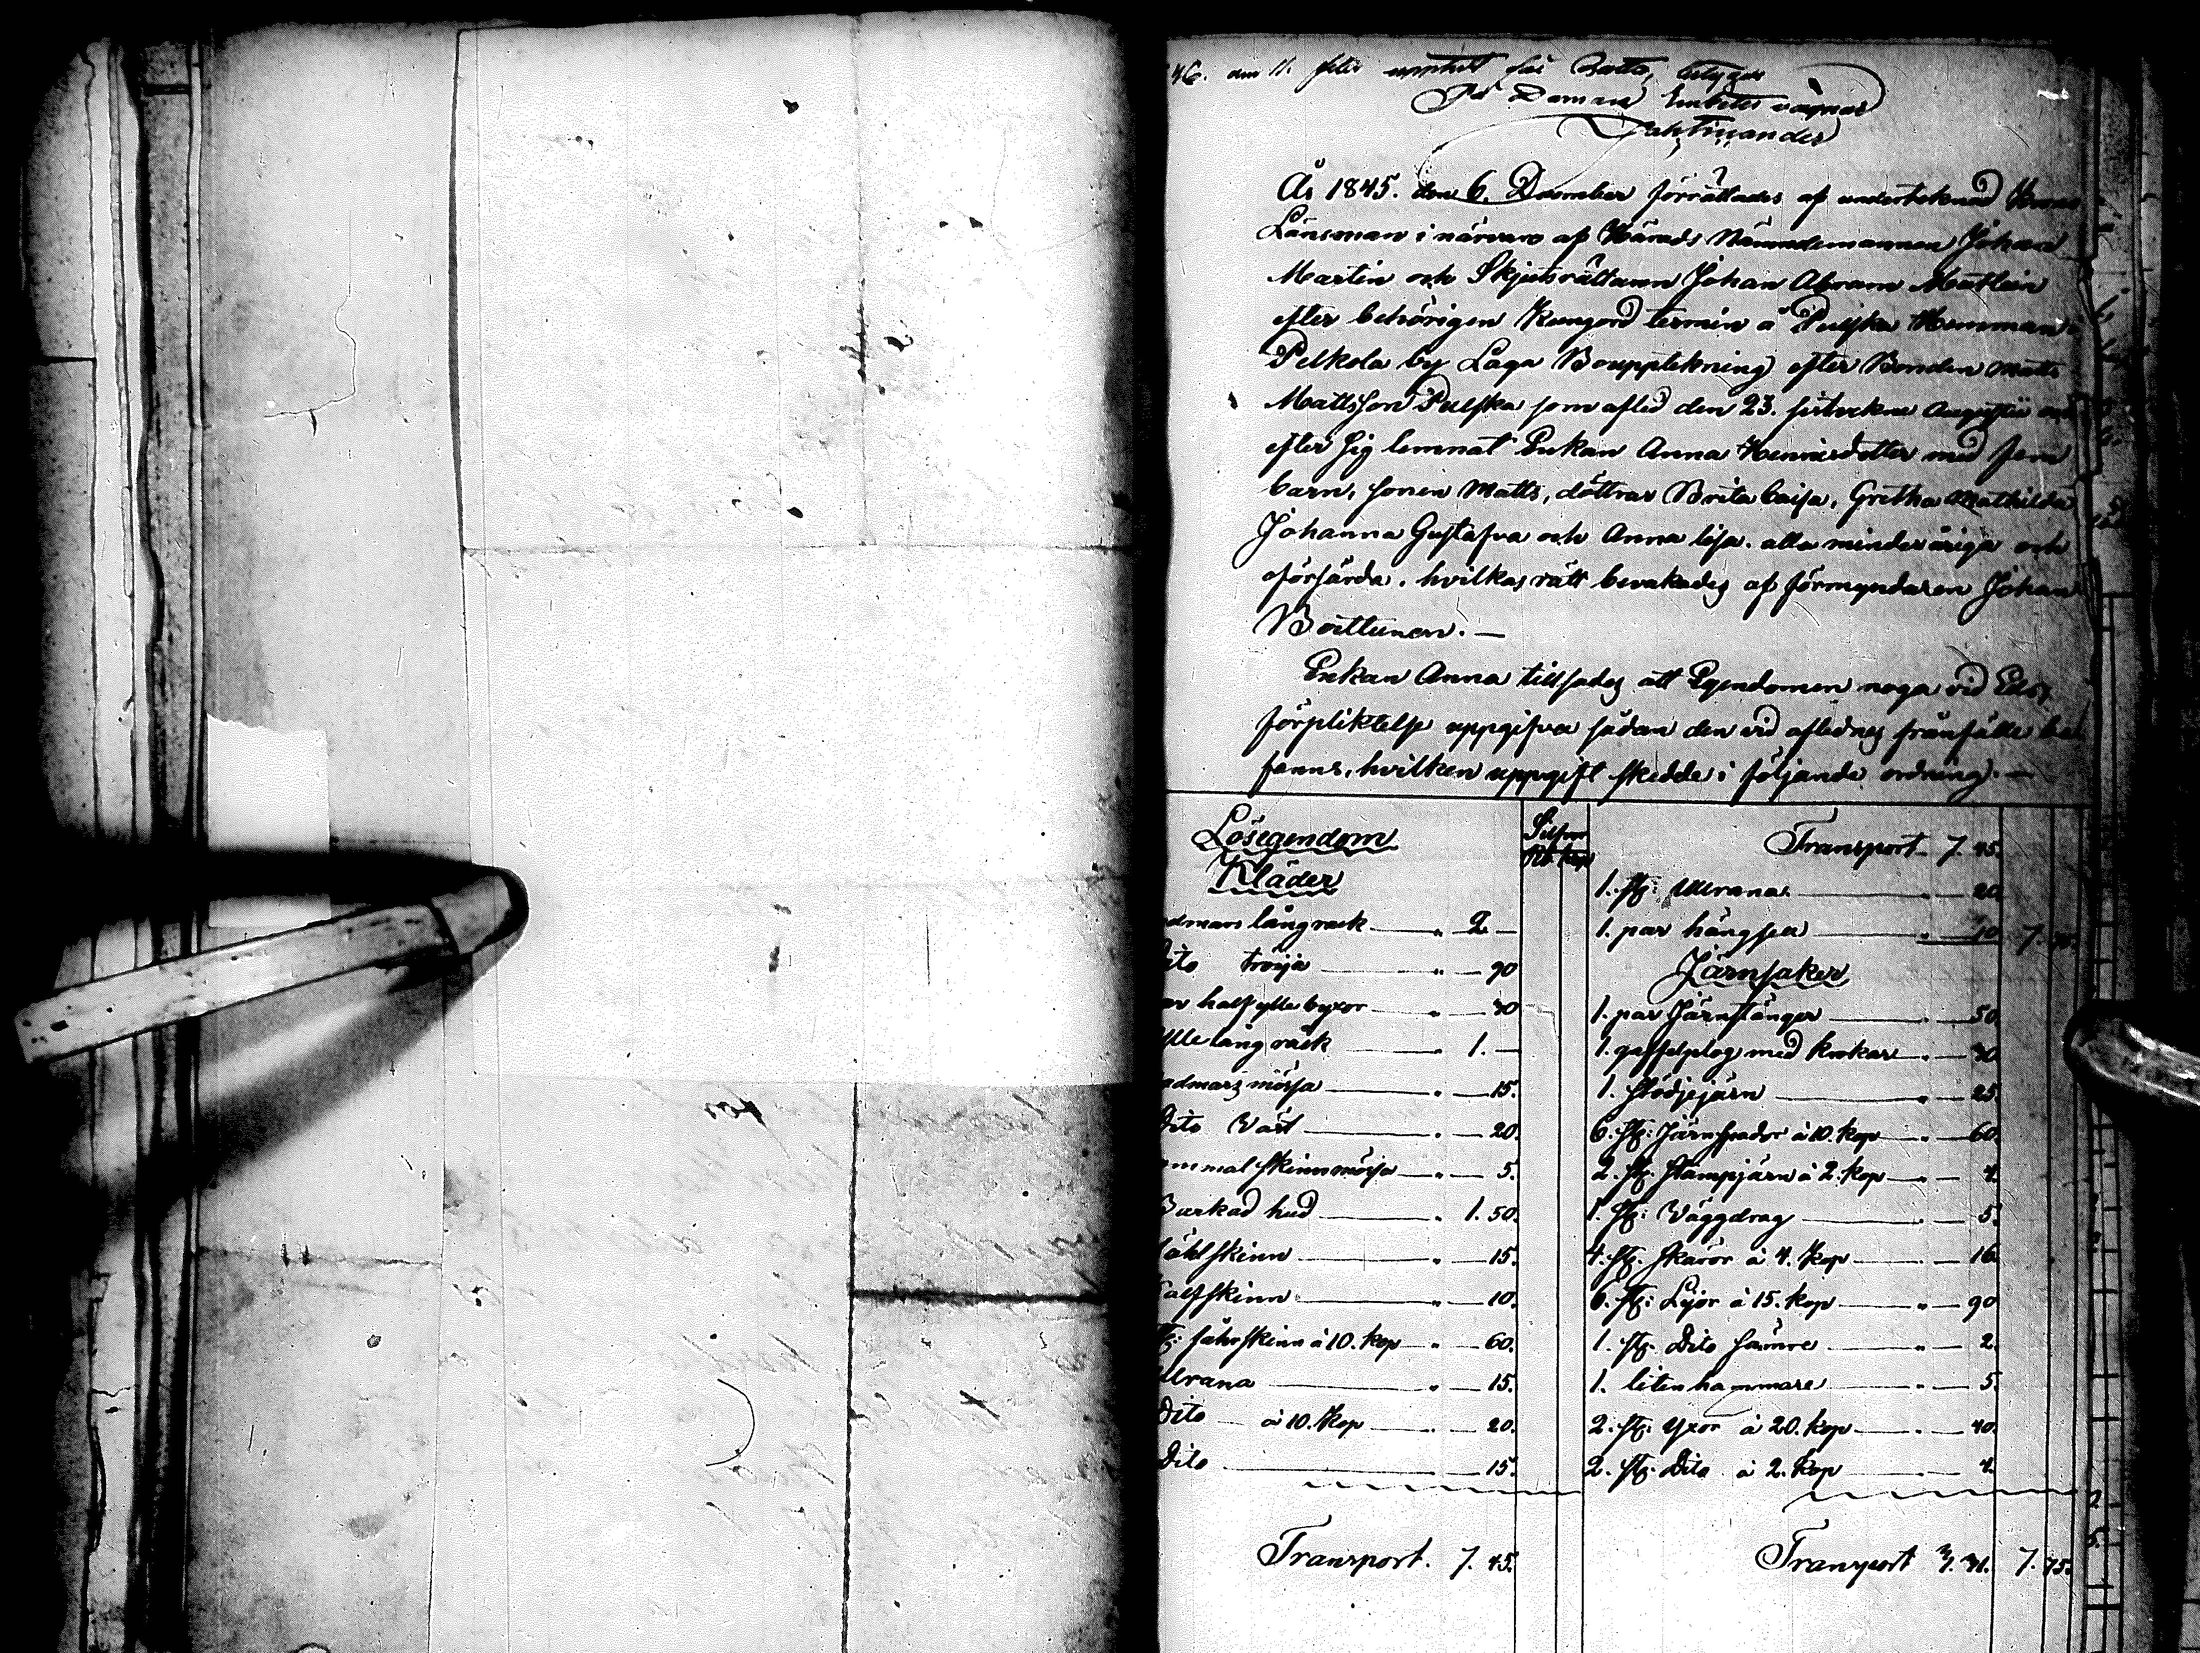 46. den 11. för Rätta, betygar
På Domare Embetes vägnar
År 1845. den 6. December förrättades af undertecknad Krono
Länsman i närvaro af Härads Nämndemannen Johan
Martin och Skjutsrättaren Johan Abram Mattlin
efter behörigen Kungjord termin å Pulska Hemman i
Pelkola by Laga Bouppteckning efter Bonden Matts
Mattsson Pulska som afled den 23. sistvekne Augustii och
efter sig lemnat Enkan Anna Henricsdotter med fem
barn, sonen Matts, döttrar Brita Caisa, Gretha Mathilda
Johanna Gustafva och Anna Lisa. alla minderåriga och
oförsörda. hvilkas rätt bevakades af förmyndaren Johan
Boittunen. —
Enkan Anna tillsades att Egendomen noga vid Eds
förpliktelse uppgifva sådan den vid aflednes frånfälle be
fanns, hvilken uppgift skedde i följande ordning. —
Lösegendom
Silfver
Rb. kop
Kläder
dmans lång rock — " 2. —
Dito tröija — " — 90
ar half ylle byxor — " — 30
ylle lång råck — " 1. —
admars mössa — " — 15.
Dito Väst — " — 20.
ammal skinnmössa — " — 5.
Barkad hud — " 1. 50.
skinn — " — 15.
Calfskinn — " — 10.
st: fåhrskinn à 10. kop — " — 60.
Ulrana — " — 15.
Dito — à 10. kop — " — 20.
Dito — 15.
Transport. 7. 45.
Transport 7. 45.
1. st: Ullrana — 20
1. par hängsel — " 10 7. 75.
Järnsaker
1. par Järnstänger — " — 50.
1. gaffelplog med krokar — " — 30
1. stödjejärn — " — 25
6. st: Järnspador à 10. kop — " — 60.
2. st: stampjärn à 2. kop — " — 4.
1. st: Väggdrag — " — 5.
4. st: skäror à 4. kop — " — 16.
6. st: Lijor à 15. kop — " — 90
1. st: Dito sämre — " — 2.
1. liten hammare — " — 5.
2. st: yxor à 20. kop — " — 40.
2. st: Dito à 2. kop — " — 4.
Transport 3. 31. 7. 75.